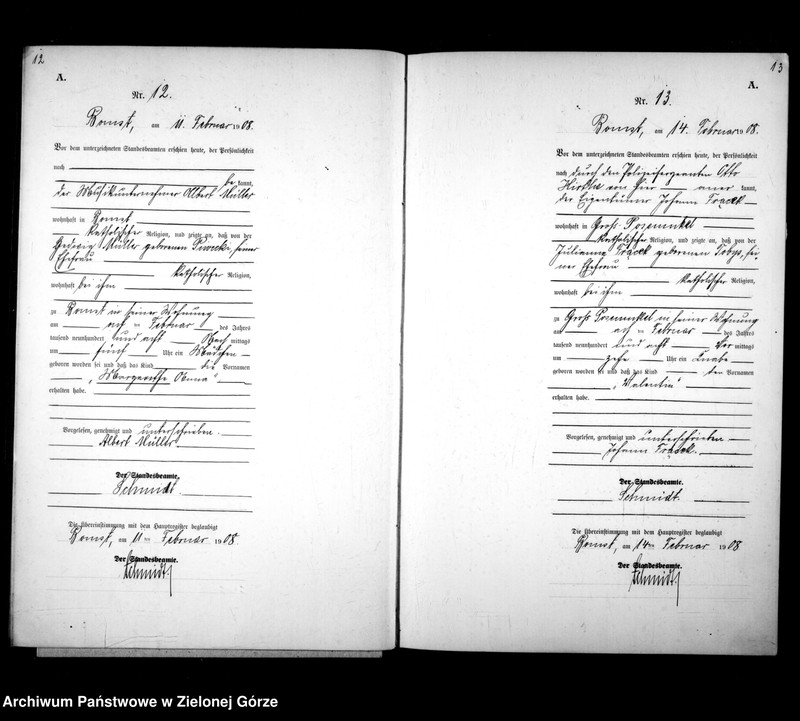 12
A.
Nr. 12.
Bomst, am 11. Februar 1908.
Vor dem unterzeichneten Standesbeamten erschien heute, der Persönlichkeit
nach
be kannt,
der Musikunternehmer Albert Müller
wohnhaft in Bomst
katholischer Religion, und zeigte an, daß von der
Hedwig Müller geborenen seiner
Ehefrau
katholischer Religion,
wohnhaft bei ihm
zu Bomst in seiner Wohnung
am acht ten Februar des Jahres
tausend neunhundert und acht Nach mittags
um fünf Uhr ein Mädchen
geboren worden sei und daß das Kind die Vornamen
„Margarethe Anna“
erhalten habe.
Vorgelesen, genehmigt und unterschrieben.
Albert Müller
Der Standesbeamte.
Schmidt
Die Übereinstimmung mit dem Hauptregister beglaubigt
Bomst, am 11 ten Februar 1908
Der Standesbeamte.
Schmidt
13
A.
Nr. 13.
Bomst, am 14. Februar 1908.
Vor dem unterzeichneten Standesbeamten erschien heute, der Persönlichkeit
nach durch den Polizeisergeanten Otto
von hier aner kannt,
der Eigentümer Johann
wohnhaft in Groß Posemukel
katholischer Religion, und zeigte an, daß von der
Julianna geborenen sei
ner Ehefrau
katholischer Religion,
wohnhaft bei ihm
zu Groß Posemukel in seiner Wohnung
am ten Februar des Jahres
tausend neunhundert und acht Vor mittags
um zehn Uhr ein Knabe
geboren worden sei und daß das Kind den Vornamen
„Valentin“
erhalten habe.
Vorgelesen, genehmigt und unterschrieben
Johann
Der Standesbeamte.
Schmidt.
Die Übereinstimmung mit dem Hauptregister beglaubigt
Bomst, am 14 ten Februar 1908
Der Standesbeamte.
Schmidt
Archiwum Państwowe w Zielonej Górze